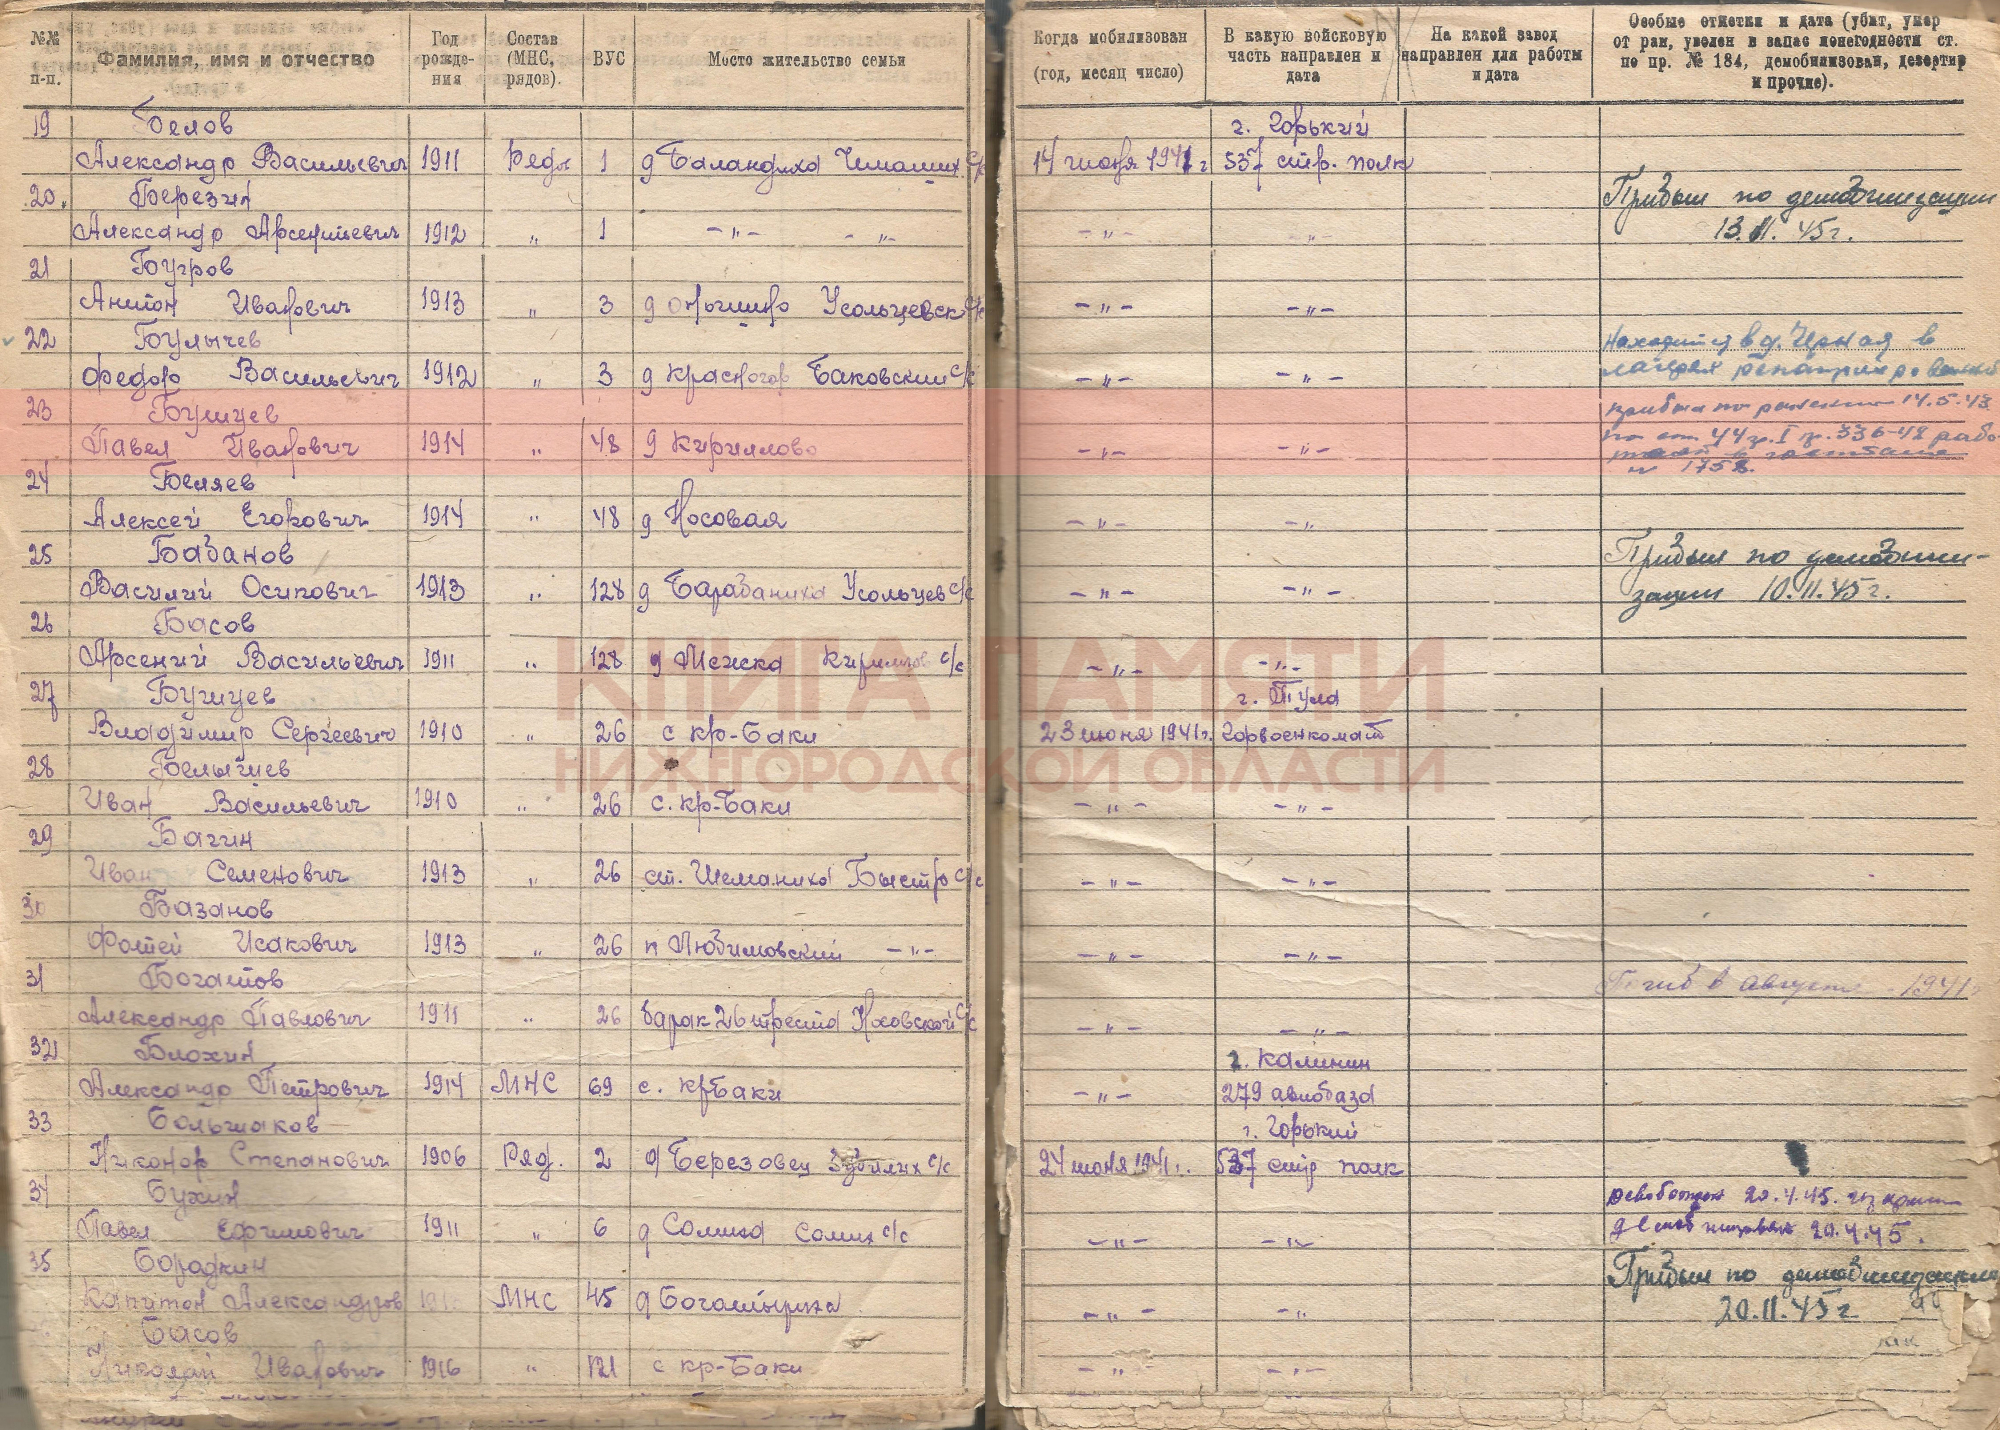 №№ п-п. Фамилия, имя и отчество Год рожде-ния Состав (МНС, рядов). ВУС Место жительство семьи Когда мобилизован (год, месяц число) В какую войсковую часть направлен и дата На какой завод направлен для работы и дата Особые отметки и дата (убит, умер от ран, уволен в запас понегодности ст. по пр. № 184, демобилизован, дезертир и прочие).
19 Белов г. Горький
Александр Васильевич 1911 Ряды 1 д Баландиха Чемаших. с/с 14 июня 1941 г 537 стр. полк
20. Березин Прибыл по демобилизации
Александр Арсентьевич 1912 „ 1 -"- -"- -"- 13.11.45г.
21 Бугров
Антон Иванович 1913 „ 3 д Усольцевск с/с -"- -"-
22 Булычев Находится в д. Черная в
Федор Васильевич 1912 „ 3 д Красногор Баковский с/с -"- -"- лагерях
23 Бушуев прибыл по ранению 14.5.43
Павел Иванович 1914 „ 48 д Кириллово -"- -"- по ст 44 гр. I пр. 336-42 рабо-
№ 1758.
24 Беляев
Алексей Егорович 1914 „ 48 д Носовая -"- -"-
25 Бабанов Прибыл по демобили-
Василий Осипович 1913 „ 128 д Барабаниха Усольцев с/с -"- -"- зации 10.11.45г.
26 Басов
Арсений Васильевич 1911 „ 128 д с/с -"- -"-
27 Бушуев г. Тула
Владимир Сергеевич 1910 „ 26 с кр-Баки 23 июня 1941г. Горвоенкомат
28 Белышев
Иван Васильевич 1910 „ 26 с. кр-Баки -"- -"-
29 Багин
Иван Семенович 1913 „ 26 ст. Шеманиха Быстр с/с -"- -"-
30 Базанов
Фотей Исакович 1913 „ 26 п Любимовский -"- -"- -"-
31 Богатов Погиб в августе - 1941г
Александр Павлович 1911 „ 26 барак 26 треста с/с -"- -"-
32 Блохин г. Калинин
Александр Петрович 1914 МНС 69 с. кр Баки -"- 279 авиобаза
33 Большаков г. Горький
Никонор Степанович 1906 Ряд. 2 д Березовец Зубилих с/с 24 июня 1941г. 537 стр полк
34 Бухин 20.4.45.
Павел Ефимович 1911 „ 6 д Сомиха Сомих с/с -"- -"- 20.4.45.
35 Бородкин Прибыл по демобилизации
Капитон Александров МНС 45 д -"- -"- 20.11.45г
Басов
Николай Иванович 1916 „ 121 с кр-Баки -"- -"-
КНИГА ПАМЯТИ
НИЖЕГОРОДСКОЙ ОБЛАСТИ